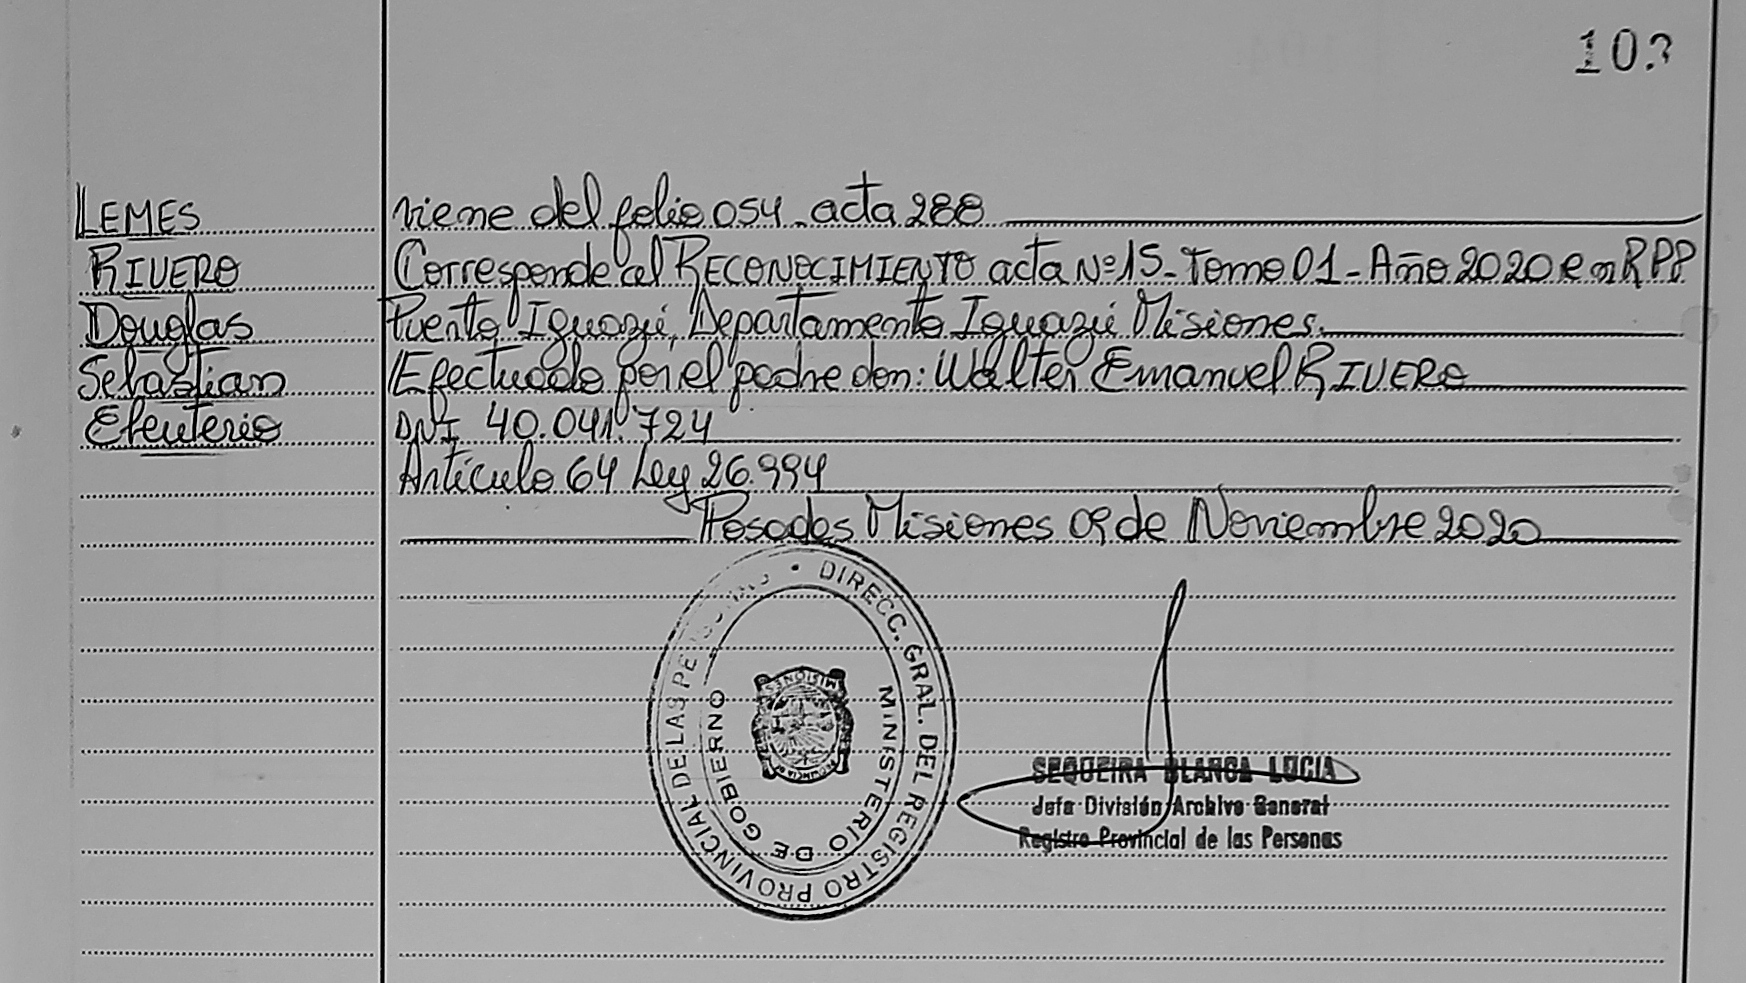 103
LEMES
RIVERO
Douglas
Sebastian
Eleuterio
viene del folio 054. acta 288
Corresponde al RECONOCIMIENTO acta Nº 15 - Tomo 01 - Año 2020 en RPP
Puerto Iguazú, Departamento Iguazú Misiones.
Efectuado por el padre don: Walter Emanuel RIVERO
DNI 40.041.724
Artículo 64 Ley 26.994
Posadas Misiones 09 de Noviembre 2020
DIRECC. GRAL. DEL REGISTRO PROVINCIAL DE LAS PERSONAS
MINISTERIO DE GOBIERNO
PROVINCIA DE MISIONES
SEQUEIRA BLANCA LUCIA
Jefa División Archivo General
Registro Provincial de las Personas